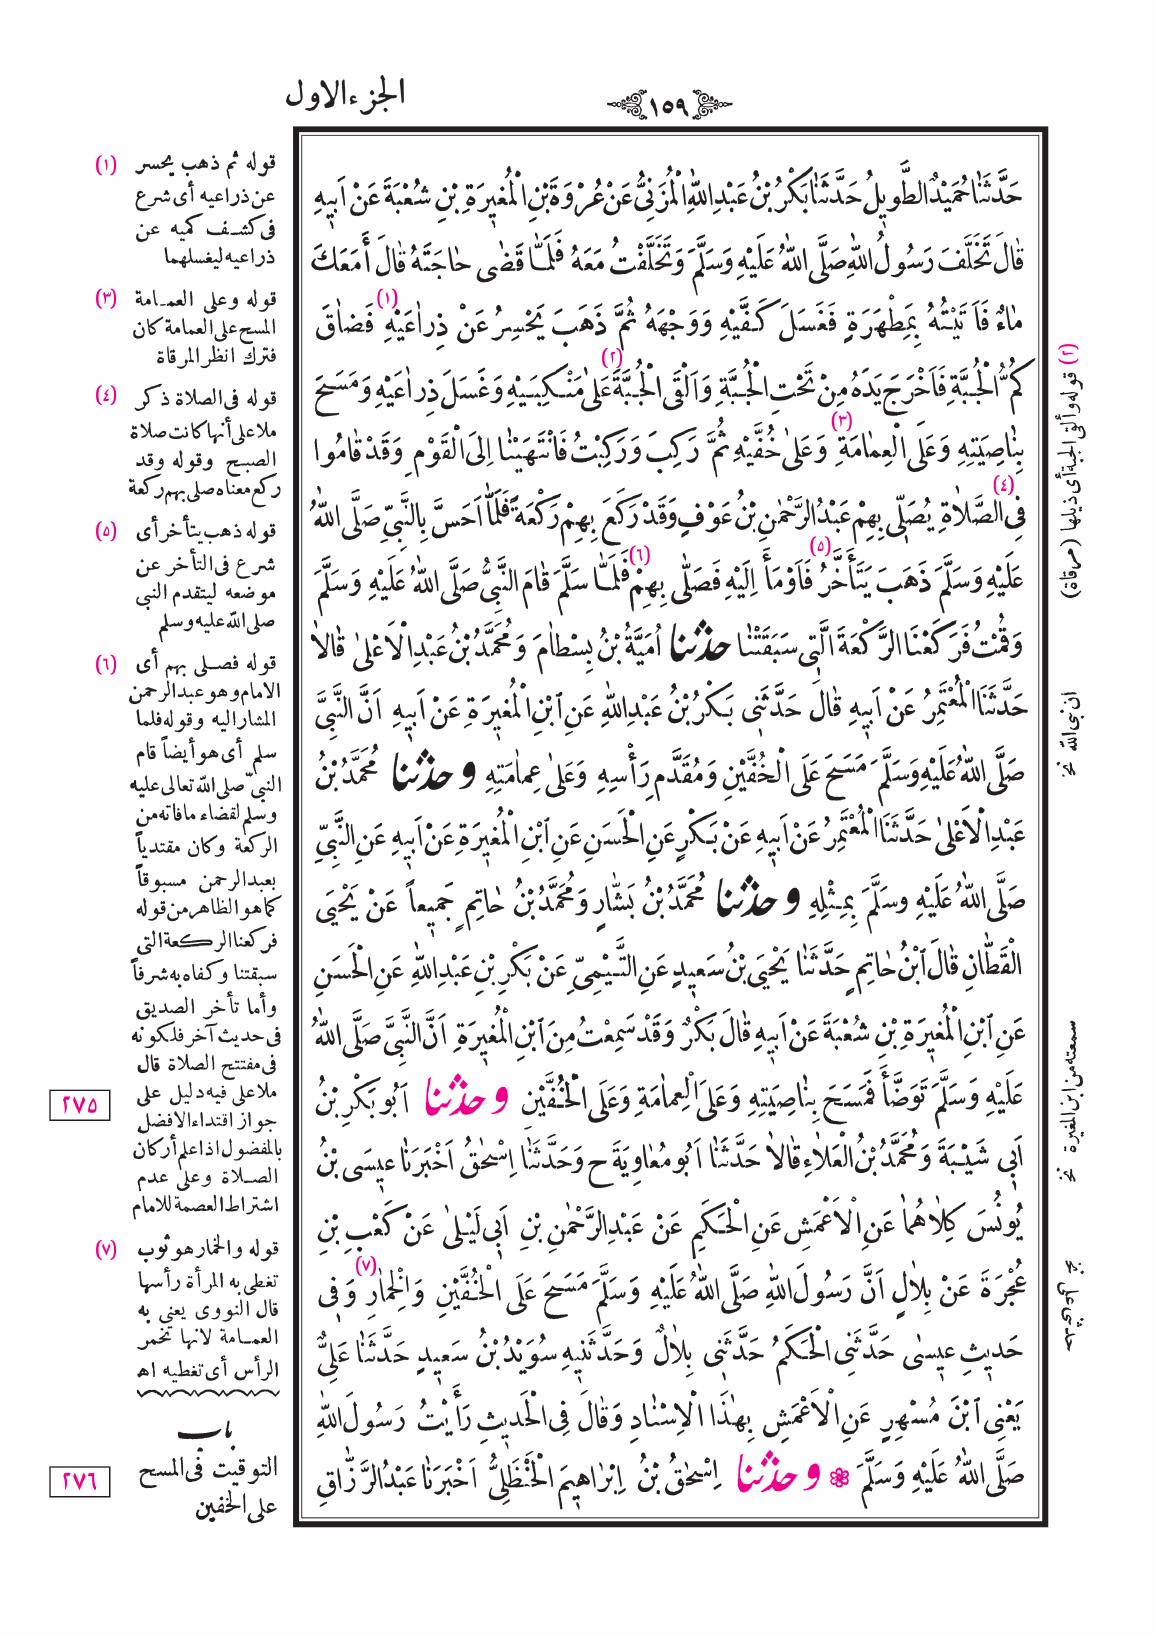 ١٥٩
الجزء الاول
حَدَّثَنَا حُمَيْدٌ الطَّوِيلُ حَدَّثَنَا بَكْرُ بْنُ عَبْدِ اللهِ الْمُزَنِيُّ عَنْ عُرْوَةَ بْنِ الْمُغِيرَةِ بْنِ شُعْبَةَ عَنْ اَبِيهِ
قَالَ تَخَلَّفَ رَسُولُ اللهِ صَلَّى اللهُ عَلَيْهِ وَسَلَّمَ وَتَخَلَّفْتُ مَعَهُ فَلَمَّا قَضٰى حَاجَتَهُ قَالَ أَمَعَكَ
مَاءٌ فَاَتَيْتُهُ بِمِطْهَرَةٍ فَغَسَلَ كَفَّيْهِ وَوَجْهَهُ ثُمَّ ذَهَبَ يَحْسِرُ عَنْ ذِرَاعَيْهِ (١) فَضَاقَ
كُمُّ الْجُبَّةِ فَاَخْرَجَ يَدَهُ مِنْ تَحْتِ الْجُبَّةِ وَاَلْقَى الْجُبَّةَ (٢) عَلىٰ مَنْكِبَيْهِ وَغَسَلَ ذِرَاعَيْهِ وَمَسَحَ
بِنَاصِيَتِهِ وَعَلَى الْعِمَامَةِ (٣) وَعَلىٰ خُفَّيْهِ ثُمَّ رَكِبَ وَرَكِبْتُ فَانْتَهَيْنَا اِلَى الْقَوْمِ وَقَدْ قَامُوا
فِى الصَّلَاةِ (٤) يُصَلِّى بِهِمْ عَبْدُ الرَّحْمٰنِ بْنُ عَوْفٍ وَقَدْ رَكَعَ بِهِمْ رَكْعَةً فَلَمَّا اَحَسَّ بِالنَّبِيِّ صَلَّى اللهُ
عَلَيْهِ وَسَلَّمَ ذَهَبَ يَتَأَخَّرُ (٥) فَاَوْمَأَ اِلَيْهِ فَصَلّٰى بِهِمْ (٦) فَلَمَّا سَلَّمَ قَامَ النَّبِيُّ صَلَّى اللهُ عَلَيْهِ وَسَلَّمَ
وَقُمْتُ فَرَكَعْنَا الرَّكْعَةَ الَّتِى سَبَقَتْنَا حدثنا اُمَيَّةُ بْنُ بِسْطَامَ وَمُحَمَّدُ بْنُ عَبْدِ الْاَعْلىٰ قَالَا
حَدَّثَنَا الْمُعْتَمِرُ عَنْ اَبِيهِ قَالَ حَدَّثَنِى بَكْرُ بْنُ عَبْدِ اللهِ عَنِ ابْنِ الْمُغِيرَةِ عَنْ اَبِيهِ اَنَّ النَّبِيَّ
صَلَّى اللهُ عَلَيْهِ وَسَلَّمَ مَسَحَ عَلَى الْخُفَّيْنِ وَمُقَدَّمِ رَأْسِهِ وَعَلىٰ عِمَامَتِهِ و حدثنا مُحَمَّدُ بْنُ
عَبْدِ الْاَعْلىٰ حَدَّثَنَا الْمُعْتَمِرُ عَنْ اَبِيهِ عَنْ بَكْرٍ عَنِ الْحَسَنِ عَنِ ابْنِ الْمُغِيرَةِ عَنْ اَبِيهِ عَنِ النَّبِيِّ
صَلَّى اللهُ عَلَيْهِ وسَلَّمَ بِمِثْلِهِ و حدثنا مُحَمَّدُ بْنُ بَشَّارٍ وَمُحَمَّدُ بْنُ حَاتِمٍ جَمِيعاً عَنْ يَحْيَى
الْقَطَّانِ قَالَ ابْنُ حَاتِمٍ حَدَّثَنَا يَحْيَى بْنُ سَعِيدٍ عَنِ التَّيْمِيِّ عَنْ بَكْرِ بْنِ عَبْدِ اللهِ عَنِ الْحَسَنِ
عَنِ ابْنِ الْمُغِيرَةِ بْنِ شُعْبَةَ عَنْ اَبِيهِ قَالَ بَكْرٌ وَقَدْ سَمِعْتُ مِنَ ابْنِ الْمُغِيرَةِ اَنَّ النَّبِيَّ صَلَّى اللهُ
عَلَيْهِ وَسَلَّمَ تَوَضَّأَ فَمَسَحَ بِنَاصِيَتِهِ وَعَلَى الْعِمَامَةِ وَعَلَى الْخُفَّيْنِ و حدثنا اَبُو بَكْرِ بْنُ
اَبِى شَيْبَةَ وَمُحَمَّدُ بْنُ الْعَلَاءِ قَالَا حَدَّثَنَا اَبُو مُعَاوِيَةَ ح وَحَدَّثَنَا اِسْحٰقُ اَخْبَرَنَا عِيسَى بْنُ
يُونُسَ كِلَاهُمَا عَنِ الْاَعْمَشِ عَنِ الْحَكَمِ عَنْ عَبْدِ الرَّحْمٰنِ بْنِ اَبِى لَيْلىٰ عَنْ كَعْبِ بْنِ
عُجْرَةَ عَنْ بِلَالٍ اَنَّ رَسُولَ اللهِ صَلَّى اللهُ عَلَيْهِ وَسَلَّمَ مَسَحَ عَلَى الْخُفَّيْنِ وَالْخِمَارِ (٧) وَفِى
حَدِيثِ عِيسٰى حَدَّثَنِى الْحَكَمُ حَدَّثَنِى بِلَالٌ وَحَدَّثَنِيهِ سُوَيْدُ بْنُ سَعِيدٍ حَدَّثَنَا عَلِيٌّ
يَعْنِى ابْنَ مُسْهِرٍ عَنِ الْاَعْمَشِ بِهٰذَا الْاِسْنَادِ وَقَالَ فِى الْحَدِيثِ رَأَيْتُ رَسُولَ اللهِ
صَلَّى اللهُ عَلَيْهِ وَسَلَّمَ و حدثنا اِسْحٰقُ بْنُ اِبْرَاهِيمَ الْحَنْظَلِيُّ اَخْبَرَنَا عَبْدُ الرَّزَّاقِ
(٢) قوله وألقى الجبة أى ذيلها (مرقاة)
ان نبى الله نخ
سمعته من ابن المغيرة نخ
حدثنى على نخ
(١) قوله ثم ذهب يحسر
عن ذراعيه أى شرع
فى كشف كميه عن
ذراعيه ليغسلهما
(٣) قوله وعلى العمامة
المسح على العمامة كان
فترك انظر المرقاة
(٤) قوله فى الصلاة ذكر
ملا على أنها كانت صلاة
الصبح وقوله وقد
ركع معناه صلى بهم ركعة
(٥) قوله ذهب يتأخر أى
شرع فى التأخر عن
موضعه ليتقدم النبى
صلى الله عليه وسلم
(٦) قوله فصلى بهم أى
الامام وهو عبد الرحمن
المشار اليه وقوله فلما
سلم أى هو أيضاً قام
النبىّ صلى الله تعالى عليه
وسلم لقضاء مافاته من
الركعة وكان مقتدياً
بعبد الرحمن مسبوقاً
كما هو الظاهر من قوله
فركعنا الركعة التى
سبقتنا وكفاه به شرفاً
وأما تأخر الصديق
فى حديث آخر فلكونه
فى مفتتح الصلاة قال
ملا على فيه دليل على
جواز اقتداء الافضل
بالمفضول اذا علم أركان
الصلاة وعلى عدم
اشتراط العصمة للامام
(٧) قوله والخمار هو ثوب
تغطى به المرأة رأسها
قال النووى يعنى به
العمامة لانها تخمر
الرأس أى تغطيه اه
باب
التوقيت فى المسح
على الخفين
٢٧٥
٢٧٦